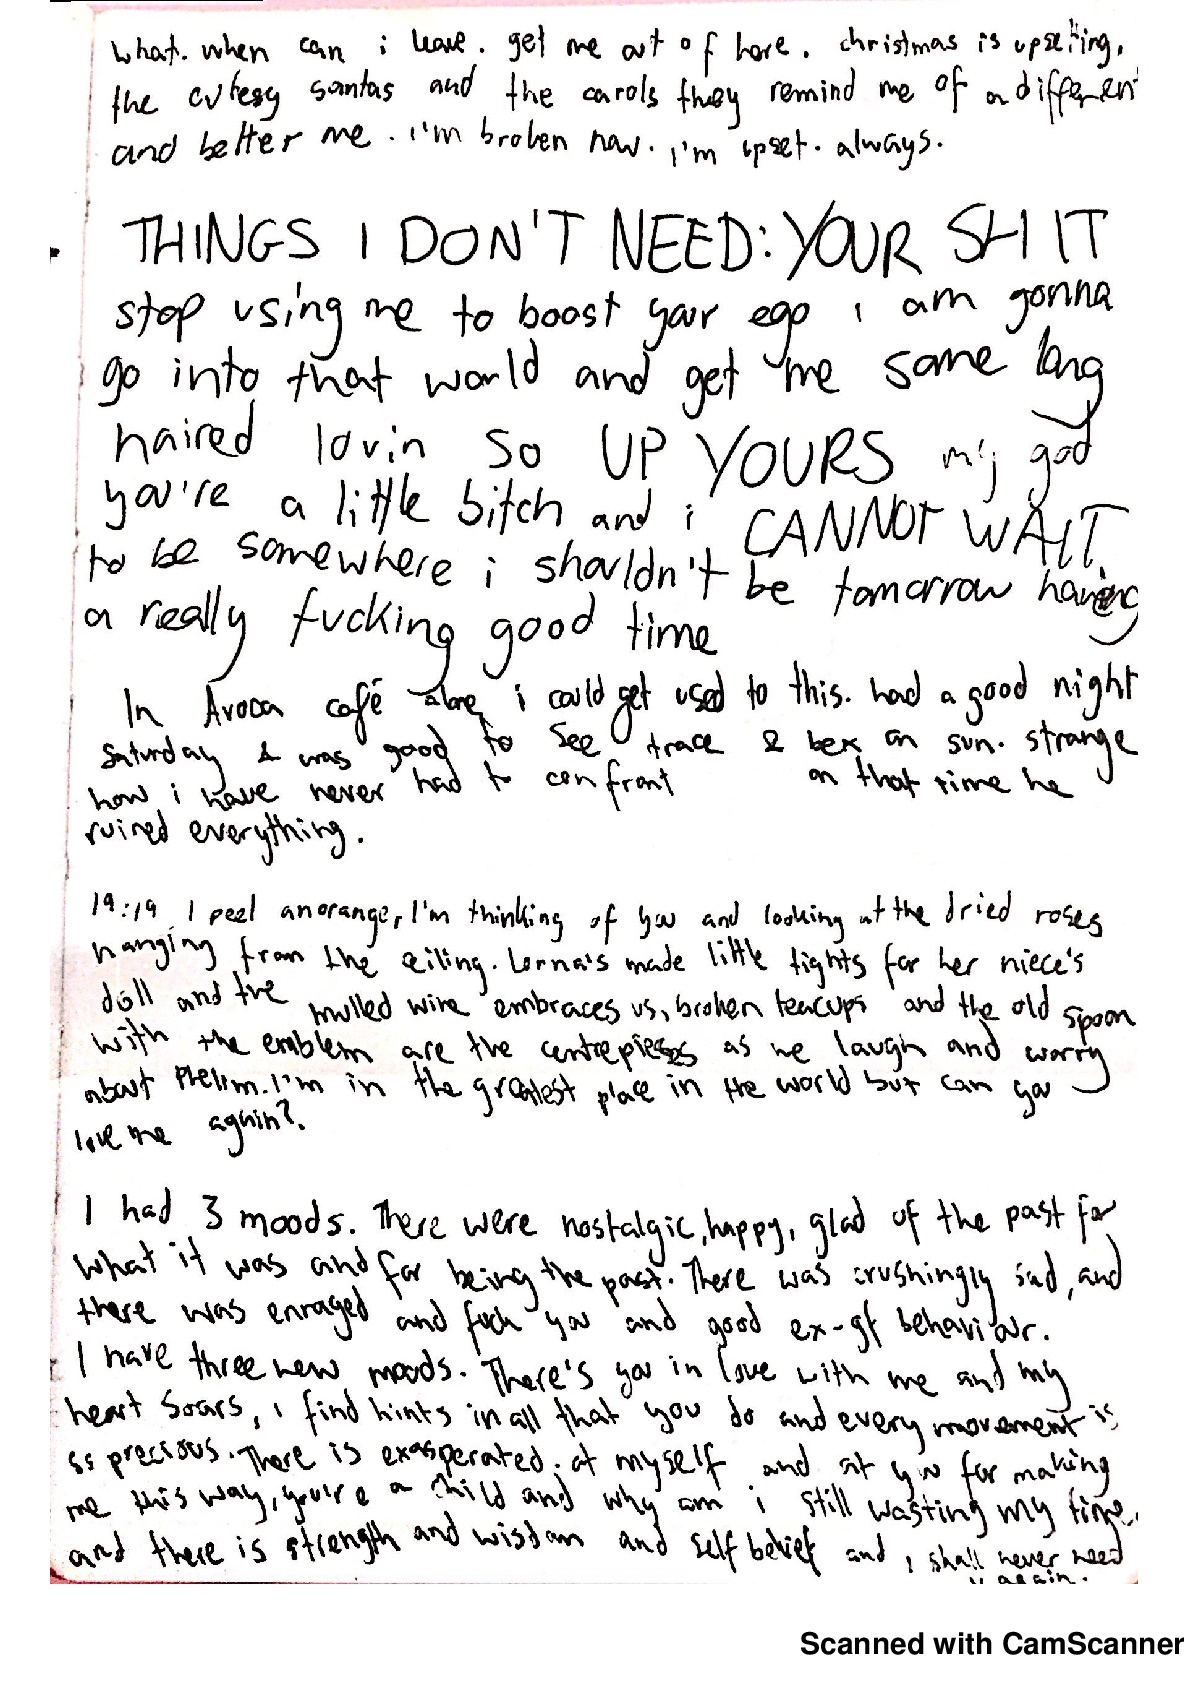 what. when can i leave. get me out of here. christmas is upsetting,
the cutesy santas and the carols they remind me of a different
and better me. i'm broken now. i'm upset. always.
THINGS I DON'T NEED: YOUR SHIT
stop using me to boost your ego i am gonna
go into that world and get me some long
haired lovin so UP YOURS my god
you're a little bitch and i CANNOT WAIT
to be somewhere i shouldn't be tomorrow having
a really fucking good time
In Avoca café alone, i could get used to this. had a good night
saturday & was good to see trace & bex on sun. strange
how i have never had to confront on that time he
ruined everything.
19:19 I peel an orange, I'm thinking of you and looking at the dried roses
hanging from the ceiling. Lorna's made little tights for her niece's
doll and the mulled wine embraces us, broken teacups and the old spoon
with the emblem are the centrepieces as we laugh and worry
about Phelim. I'm in the greatest place in the world but can you
love me again?
I had 3 moods. There were nostalgic, happy, glad of the past for
what it was and for being the past. There was crushingly sad, and
there was enraged and fuck you and good ex-gf behaviour.
I have three new moods. There's you in love with me and my
heart soars, i find hints in all that you do and every movement is
so precious. There is exasperated. at myself and at you for making
me this way, you're a child and why am i still wasting my time,
and there is strength and wisdom and self belief and i shall never need
u again.
Scanned with CamScanner